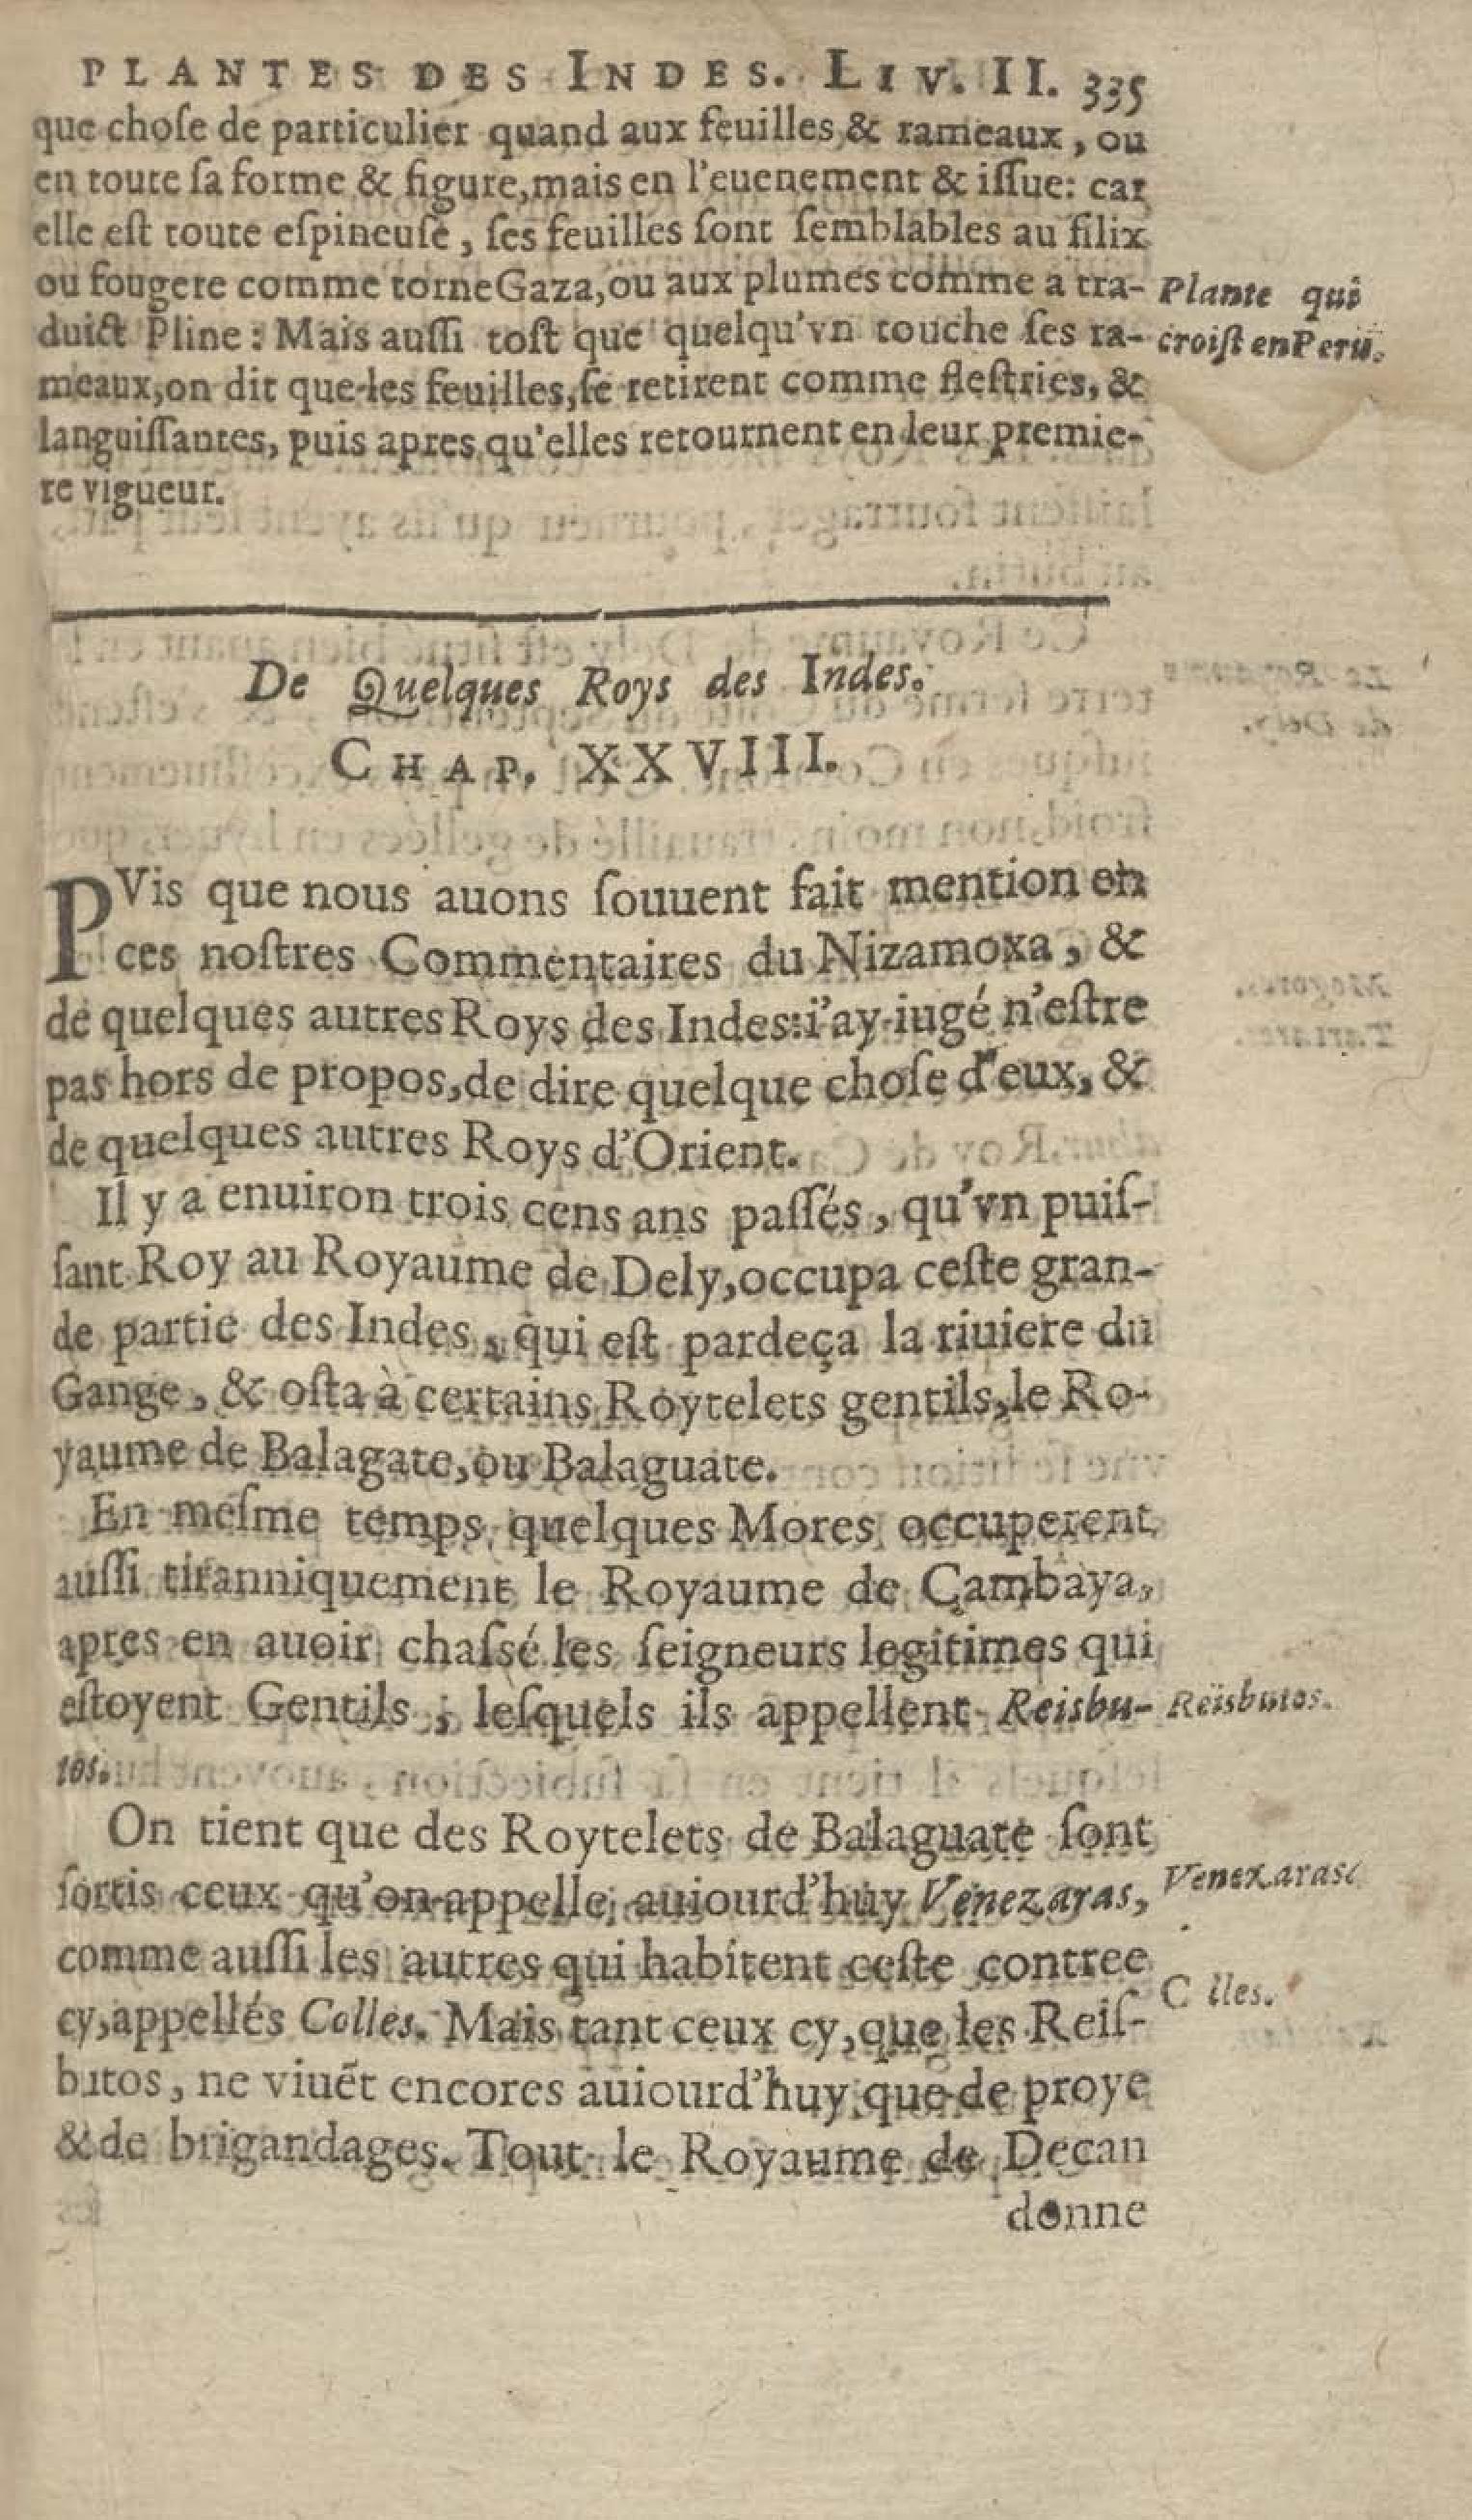 PLANTES DES INDES. LIV. II. 335
que choſe de particulier quand aux feuilles & rameaux, ou
en toute ſa forme & figure, mais en l'euenement & iſſue: car
elle eſt toute eſpineuſe, ſes feuilles ſont ſemblables au filix
ou fougere comme torne Gaza, ou aux plumes comme a tra-
Plante qui
duict Pline: Mais auſſi toſt que quelqu'vn touche ſes ra-
croiſt en Peru.
meaux, on dit que les feuilles, ſe retirent comme fleſtries, &
languiſſantes, puis apres qu'elles retournent en leur premie-
re vigueur.
De Quelques Roys des Indes.
CHAP. XXVIII.
PVis que nous auons ſouuent fait mention en
ces noſtres Commentaires du Nizamoxa, &
de quelques autres Roys des Indes: i'ay iugé n'eſtre
pas hors de propos, de dire quelque choſe d'eux, &
de quelques autres Roys d'Orient.
Il y a enuiron trois cens ans paſſés, qu'vn puiſ-
ſant Roy au Royaume de Dely, occupa ceſte gran-
de partie des Indes, qui eſt pardeça la riuiere du
Gange, & oſta à certains Roytelets gentils, le Ro-
yaume de Balagate, ou Balaguate.
En meſme temps quelques Mores occuperent
auſſi tiranniquement le Royaume de Cambaya,
apres en auoir chaſsé les ſeigneurs legitimes qui
eſtoyent Gentils; leſquels ils appellent Reisbu-
Reisbutos.
tos.
On tient que des Roytelets de Balaguate ſont
ſortis ceux qu'on appelle auiourd'huy Venezaras,
Venezaras
comme auſſi les autres qui habitent ceſte contree
cy, appellés Colles. Mais tant ceux cy, que les Reiſ-
C lles.
butos, ne viuẽt encores auiourd'huy que de proye
& de brigandages. Tout le Royaume de Decan
donne